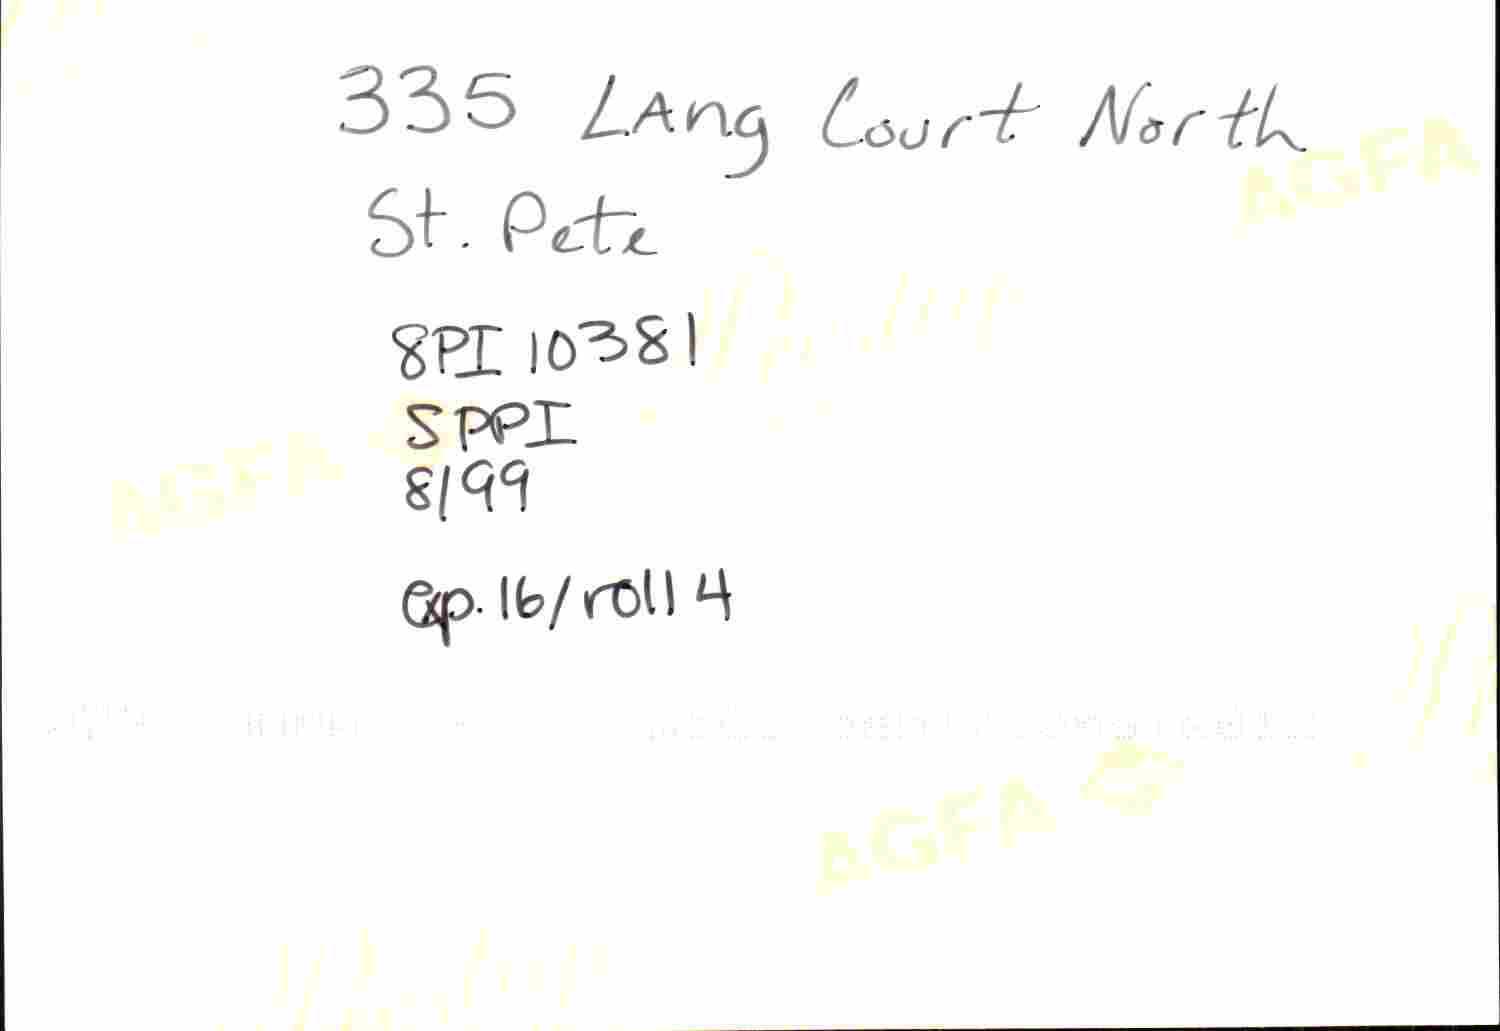 335 LAng Court North
St. Pete
8PI 10381
SPPI
8/99
exp. 16/roll 4
AGFA
AGFA
AGFA